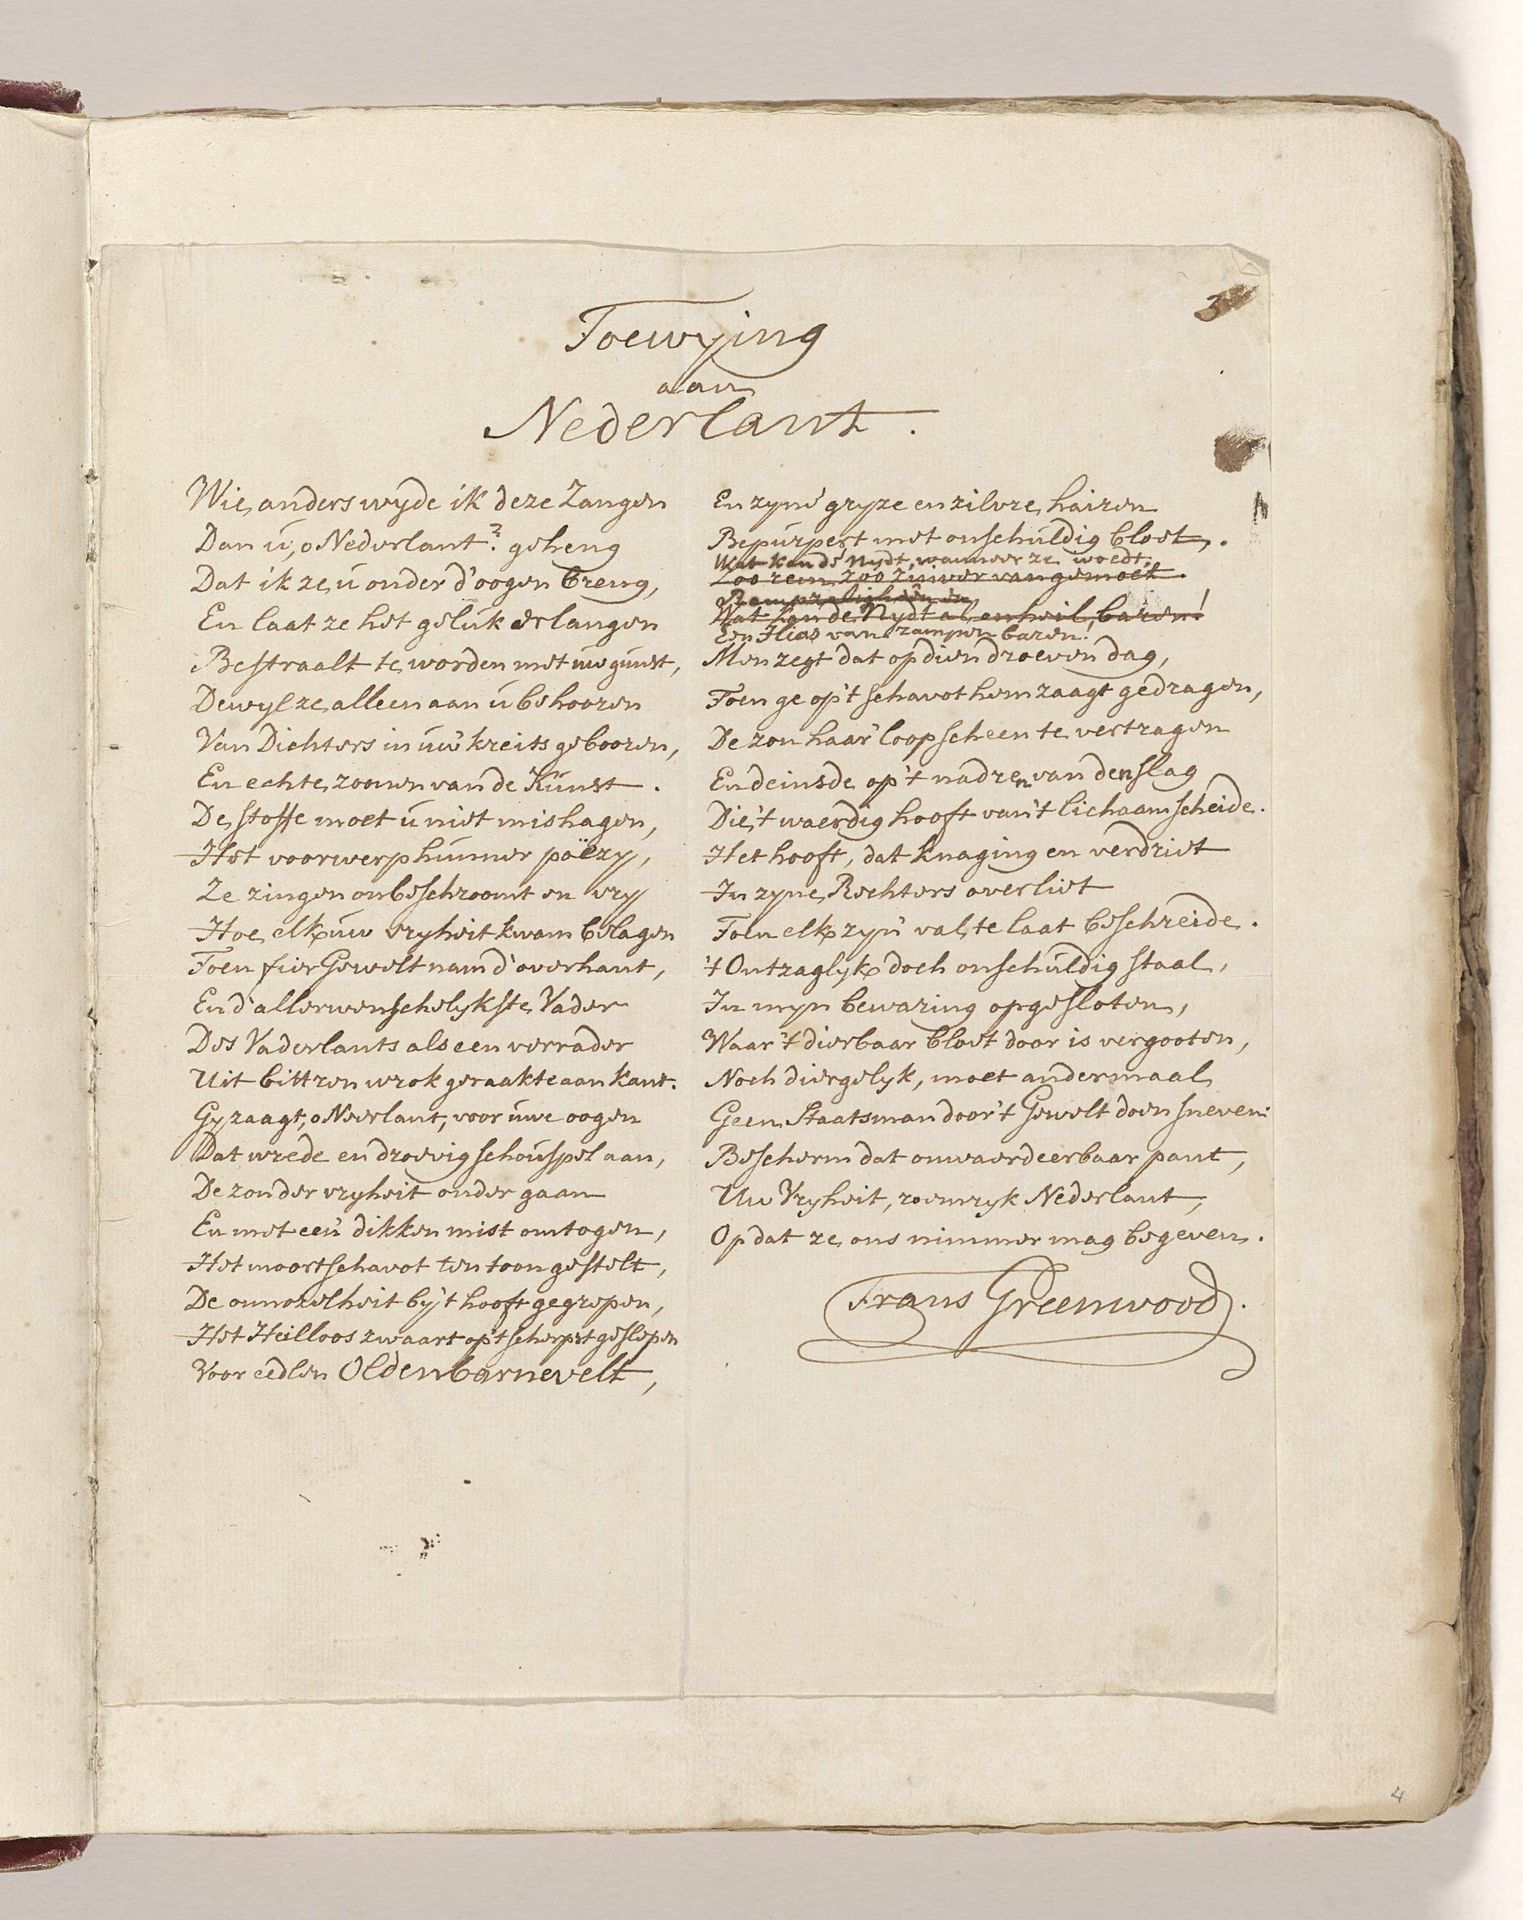 3
Toewying
aan
Nederlant.
Wie anders wyde ik deze Zangen
Dan ú, o Nederlant? geheng
Dat ik ze ú onder d'oogen breng,
En laat ze het gelúk erlangen
Bestraalt te worden met uw gúnst,
Dewyl ze alleen aan ú behooren
Van Dichters in úw' kreits gebooren,
En echte zoonen van de Kúnst.
De stoffe moet ú niet mishagen,
Het voorwerp húnner poëzy,
Ze zingen onbeschroomt en vry
Hoe elk úw vryheit kwam belagen
Toen fier Gewelt nam d'overhant,
En d'allerwenschelykste Vader
Des Vaderlants als een verrader
Uit bittren wrok geraakte aan kant.
Gy zaagt, o Neerlant, voor úwe oogen
Dat wrede en droevig schoúspel aan,
De zon der vryheit ondergaan
En met een' dikken mist omtogen,
Het moortschavot ten toon gestelt,
De onnozelheit by 't hooft gegrepen,
Het Heilloos zwaart op 't scherpst geslepen
Voor eedlen Oldenbarnevelt,
En zyne gryze en zilvre hairen
Bepúrpert met onschúldig bloet.
Wat kan de Nydt, wanneer ze woedt,
Zoo rein, zoo zuiver van gemoet.
Rampzaligheên en
Wat kan de Nydt al onheil baren!
Een Ilias van rampen baren!
Men zegt dat op dien droeven dag,
Toen ge op 't schavot hem zaagt gedragen,
De zon haar' loop scheen te vertragen
En deinsde op 't nadren van den slag
Die 't waerdig hooft van 't lichaam scheide.
Het hooft, dat knaging en verdriet
In zyne Rechters overliet
Toen elk zyn' val te laat beschreide.
't Ontzaglyk doch onschúldig staal,
In myn bewaring opgesloten,
Waar 't dierbaar bloet door is vergooten,
Noch diergelyk, moet andermaal
Geen Staatsman door 't Gewelt doen sneven:
Bescherm dat onwaerdeerbaar pant,
Uw Vryheit, roemryk Nederlant,
Op dat ze ons nimmer mag begeven.
Frans Greenwood.
4